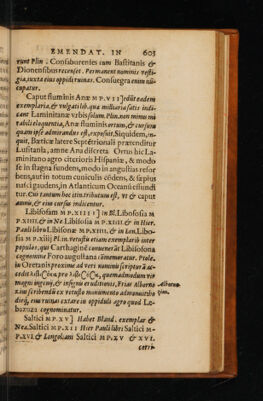 EMENDAT. IN 603
runt Plin. Consaborenses cum Bastitanis &
Dionensibus recenset. Permanent nominis vesti-
gia, iuxta eius oppidi ruinas. Consuegra enim nū-
cupatur.
Caput fluminis Anæ M P. VII] dūt eadem
exemplaria, & vulgati lib. qua miliaria satis indi-
cant Laminitanæ vrbis solum. Plin. non minus mi
rabili eloquentia, Anæ fluminis ortum, & cursum
quam ipse admirandus est, exposuit, Siquidem, in-
quit, Bæticæ latere Septētrionali prætenditur
Lusitania, amne Ana discreta. Ortus hic La-
minitano agro citerioris Hispaniæ, & modo
se in stagna fundens, modo in angustias resor
bens, aut in totum cuniculis cōdens, & sæpius
nasci gaudens, in Atlanticum Oceanū effundi
tur. Cui tantum hoc itin. tributum est, vt & caput
amnis, & eius cursum indicaret.
Libisosam M P. XIIII] in Bl. Libososia M
P. XIII, & in Ne. Libisosia M P. XIIII, & in Hier.
Pauli libro Libisonæ M P. XIIII. & in Lon. Libo-
sia M P. xiiij Plin.
populos, qui Carthaginē conuenerāt Libisosona
cognomine Foro augustana
in Oretanis proxime ad veri nominis scripturā ac-
magni ingenij, & insignis eruditionis,
dirij, eius rutæ extare in oppidulo agro quod Le-
bazuza cognominatur.
Saltici M P. XV] Habet Bland. exemplar &
Nea. Saltici M P. XII Hier Pauli libri Saltici M
P. XVI. & Longolium Saltici M P. XV & XVI.